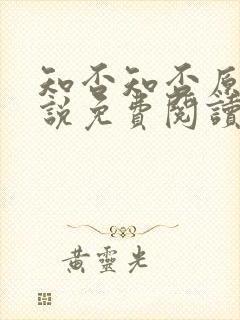 知否知否原
說免費閱讀
黃靈光